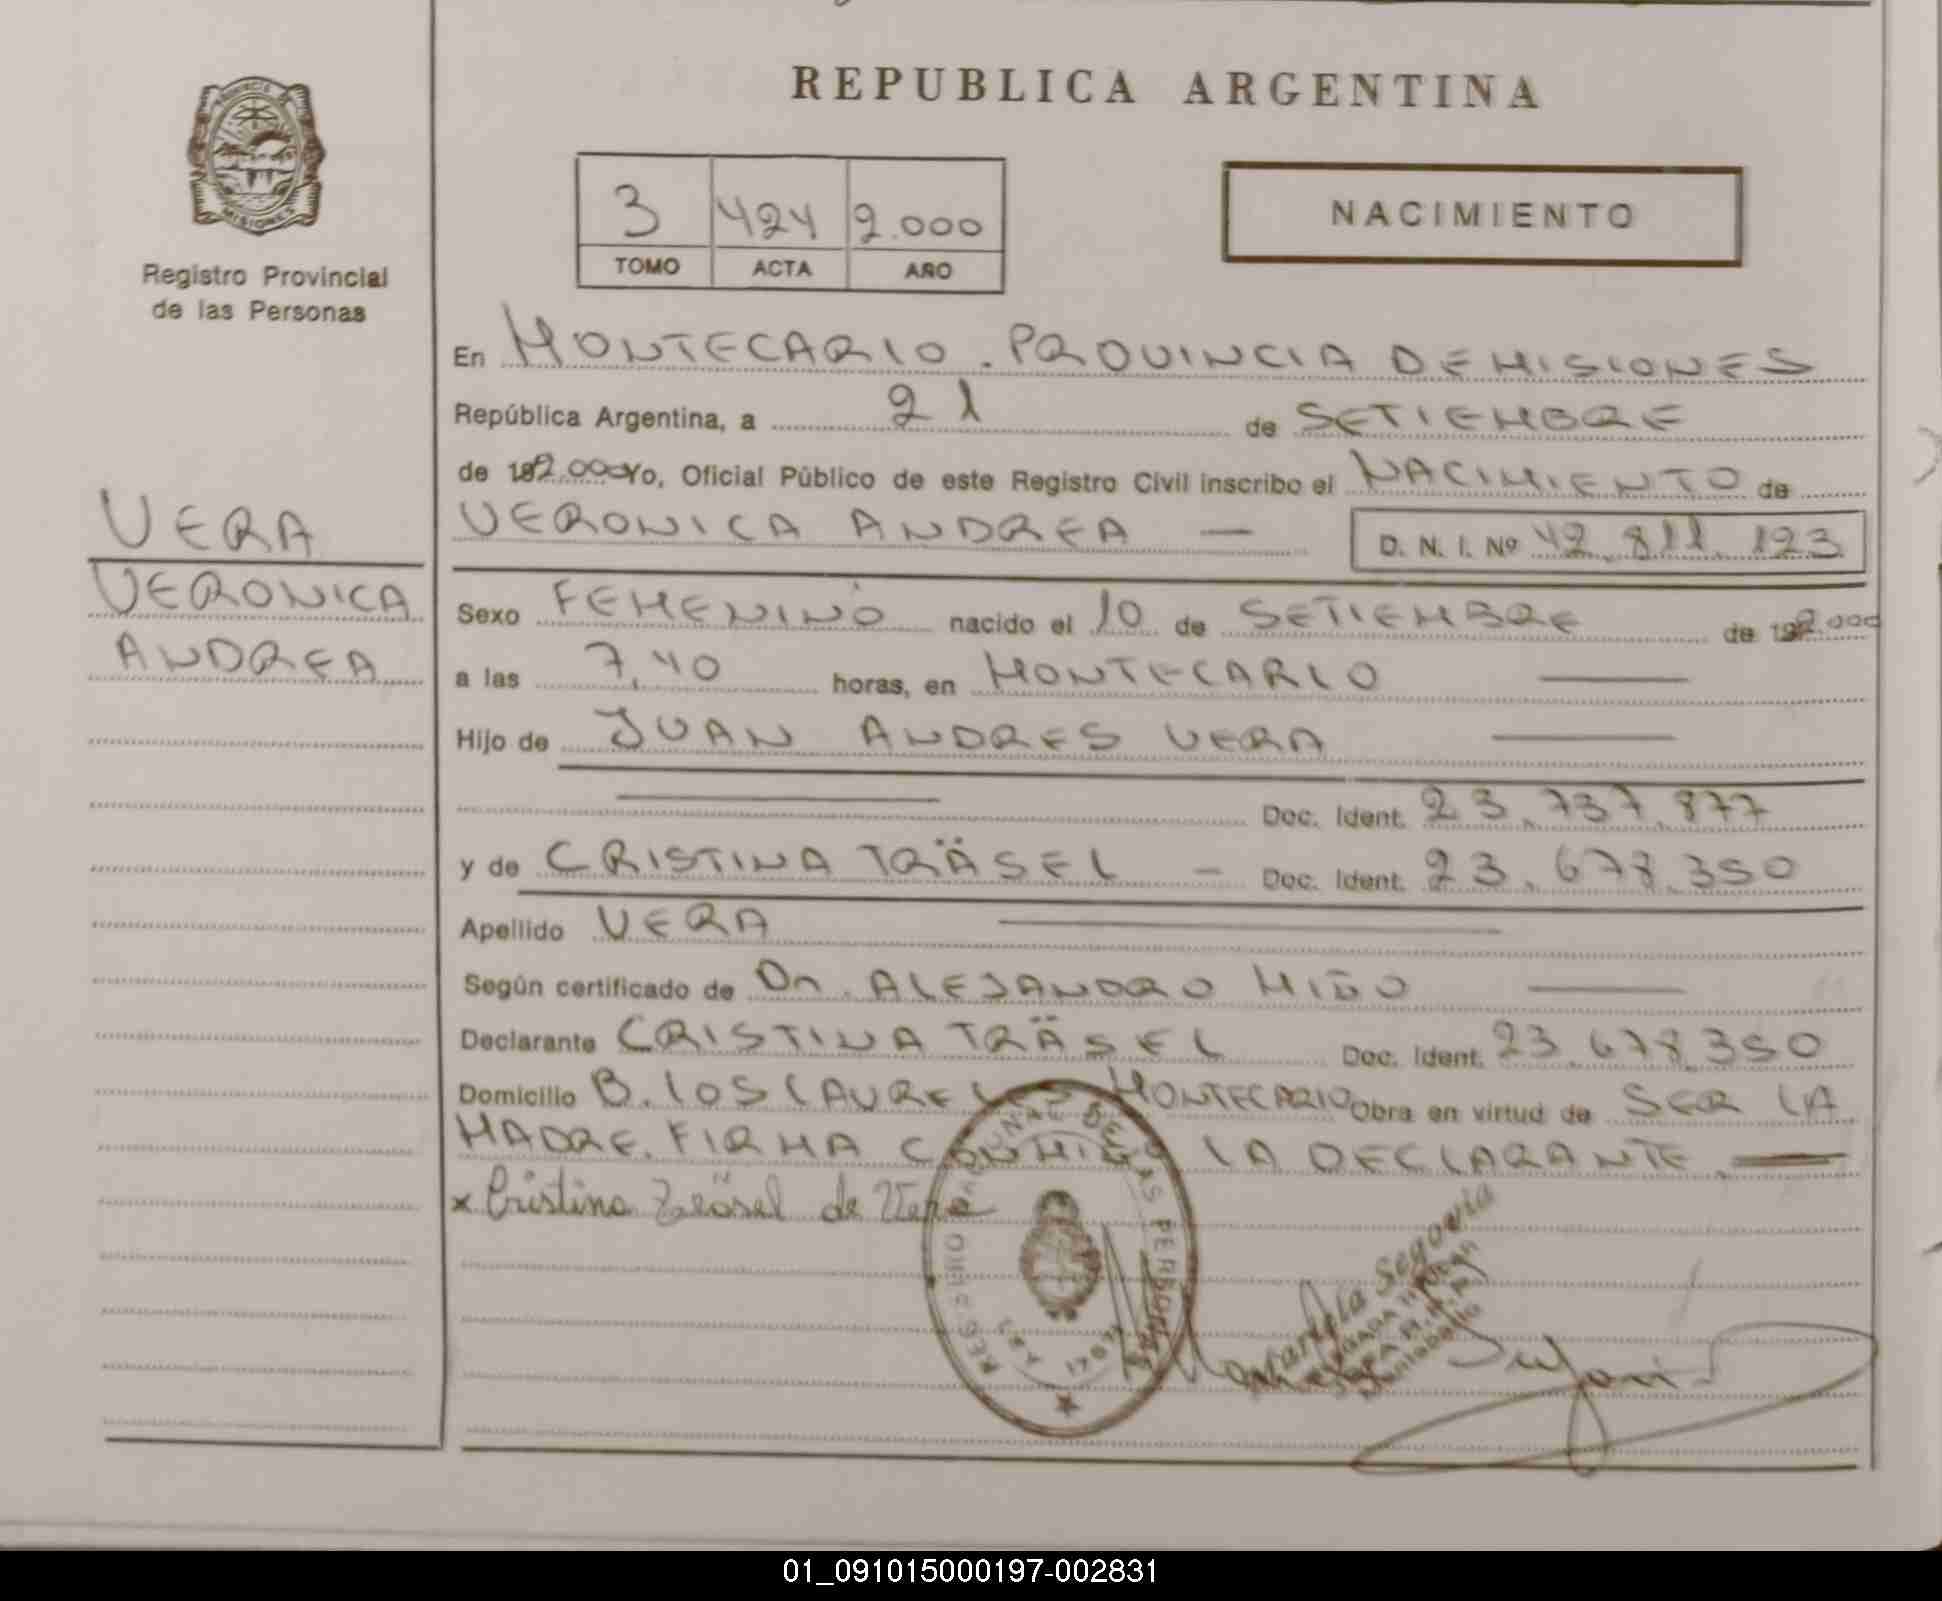 REPUBLICA ARGENTINA
PROVINCIA DE
MISIONES
Registro Provincial
de las Personas
3 424 2.000
TOMO ACTA AÑO
NACIMIENTO
En MONTECARLO. PROVINCIA DE MISIONES
República Argentina, a 21 de SETIEMBRE
de 192.000 Yo, Oficial Público de este Registro Civil inscribo el NACIMIENTO de
VERONICA ANDREA — D. N. I. Nº 42.811.123
VERA
VERONICA
ANDREA
Sexo FEMENINO nacido el 10 de SETIEMBRE de 192.000
a las 7,40 horas, en MONTECARLO
Hijo de JUAN ANDRES VERA
Doc. Ident. 23.737.877
y de CRISTINA TRÄSEL — Doc. Ident. 23.678.350
Apellido VERA
Según certificado de Dr. ALEJANDRO MIÑO
Declarante CRISTINA TRÄSEL Doc. Ident. 23.678.350
Domicilio B. LOS LAURELES MONTECARLO Obra en virtud de SER LA
MADRE. FIRMA CONMIGO LA DECLARANTE.
x Cristina Träsel de Vera
REGISTRO DE LAS PERSONAS
Mariela Segovia
Montecarlo
01_091015000197-002831